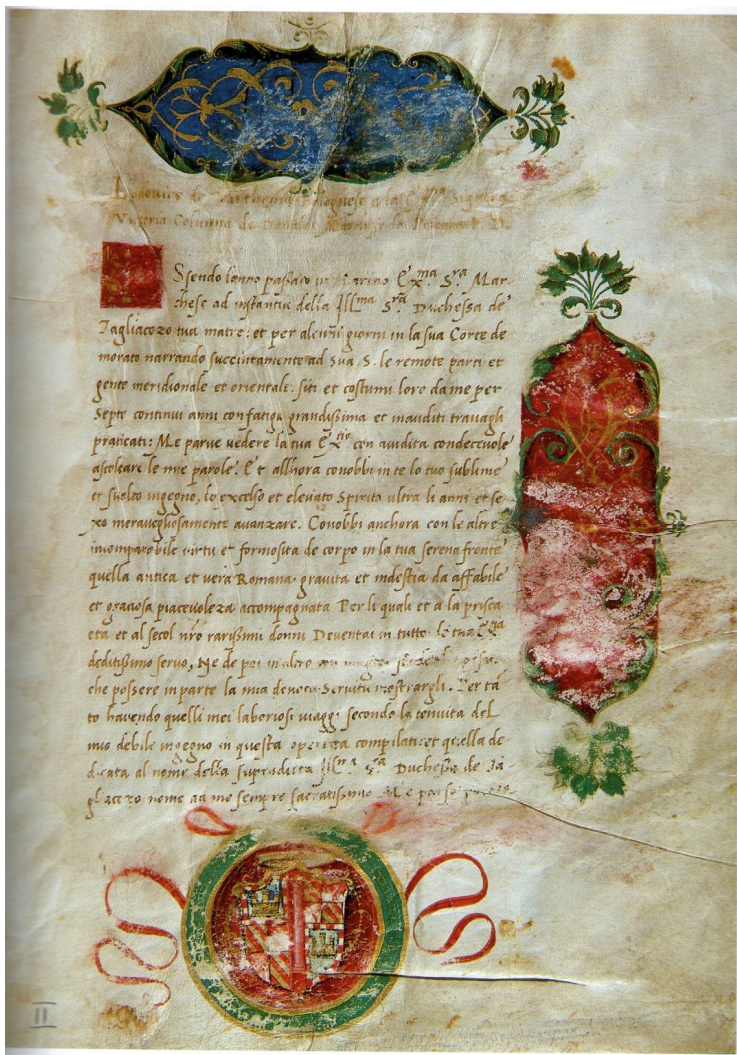 Lodovico de Varthema Bolognese a la Ex.ma Signora
Victoria Columna de
Ssendo lanno passato in Marino Ex.ma S.ra Mar-
chese ad instantia della Ill.ma S.ra Duchessa de
Tagliacozo tua matre: et per alcuni giorni in la sua Corte de
morato narrando succintamente ad sua .S. le remote parti et
gente meridionale et orientale. siti et costumi loro da me per
septe continui anni con fatiga grandissima et inauditi travagli
praticati: Me parve vedere la tua Ex.tia con avidita condecevole
ascoltare le mie parole. Et allhora conobbi in te lo tuo sublime
et svelto ingegno, lo excelso et elevato Spirito ultra li anni et se-
xo meravegliosamente avanzare. Conobbi anchora con le altre
incomparabile virtu et formosita de corpo in la tua serena fronte
quella antica et vera Romana gravita et modestia da affabile
et graciosa piacevoleza accompagnata Per li quali et a la prisca
eta et al secol nro rarissimi donni Deventai in tutto de tua Ex.tia
deditissimo servo, Ne de poi in altro
che possere in parte la mia devota Servitu mostrargli. Per tã
to havendo quelli mei laboriosi viaggi secondo la tenuita del
mio debile ingegno in questa opereta compilati: et quella de
dicata al nome della supraditta Ill.ma S.ra Duchessa de Ta
gliacozo nome ad me sempre sacratissimo Me parso
II